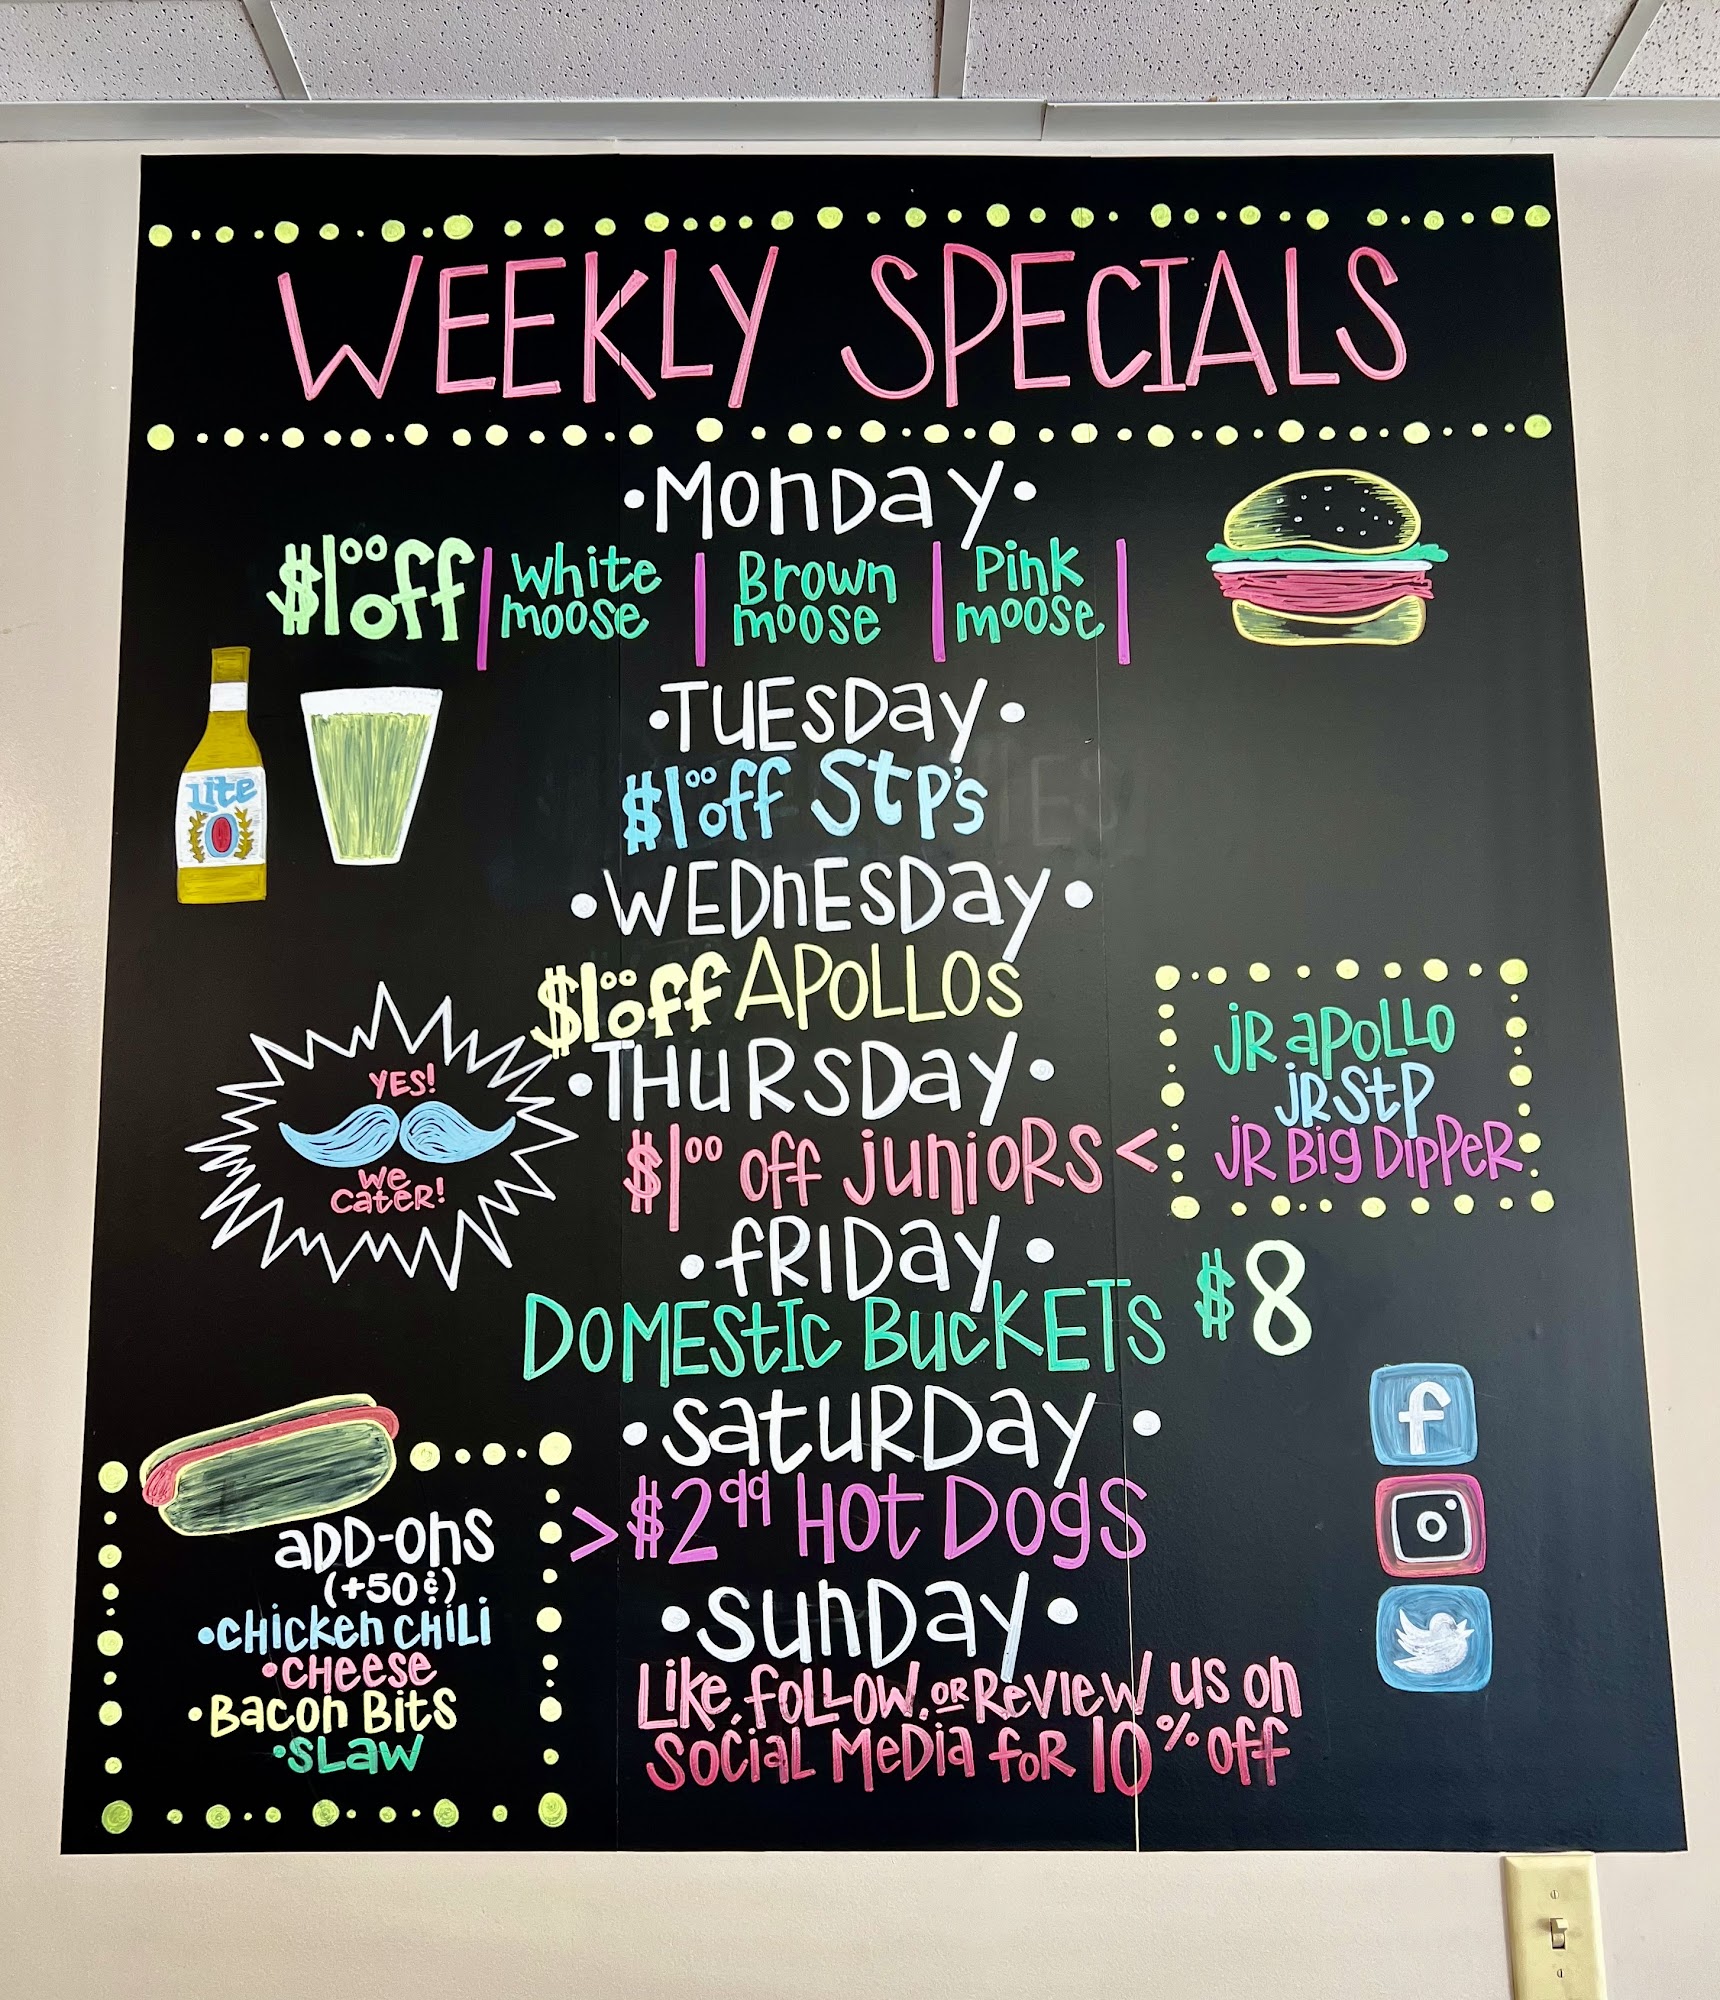 WEEKLY SPECIALS
•MONDAY•
$1.00 off | White moose | Brown moose | Pink moose |
•TUESDAY•
$1.00 off STP's
•WEDNESDAY•
$1.00 off APOLLOS
•THURSDAY•
$1.00 off JUNIORS <
JR APOLLO
JR STP
JR BIG DIPPER
•FRIDAY•
DOMESTIC BUCKETS $8
•SATURDAY•
>$2.99 HOT DOGS
•SUNDAY•
LIKE, FOLLOW, OR REVIEW US ON
SOCIAL MEDIA FOR 10% OFF
Lite
YES!
WE
CATER!
ADD-ONS
(+50¢)
•CHICKEN CHILI
•CHEESE
•BACON BITS
•SLAW
f